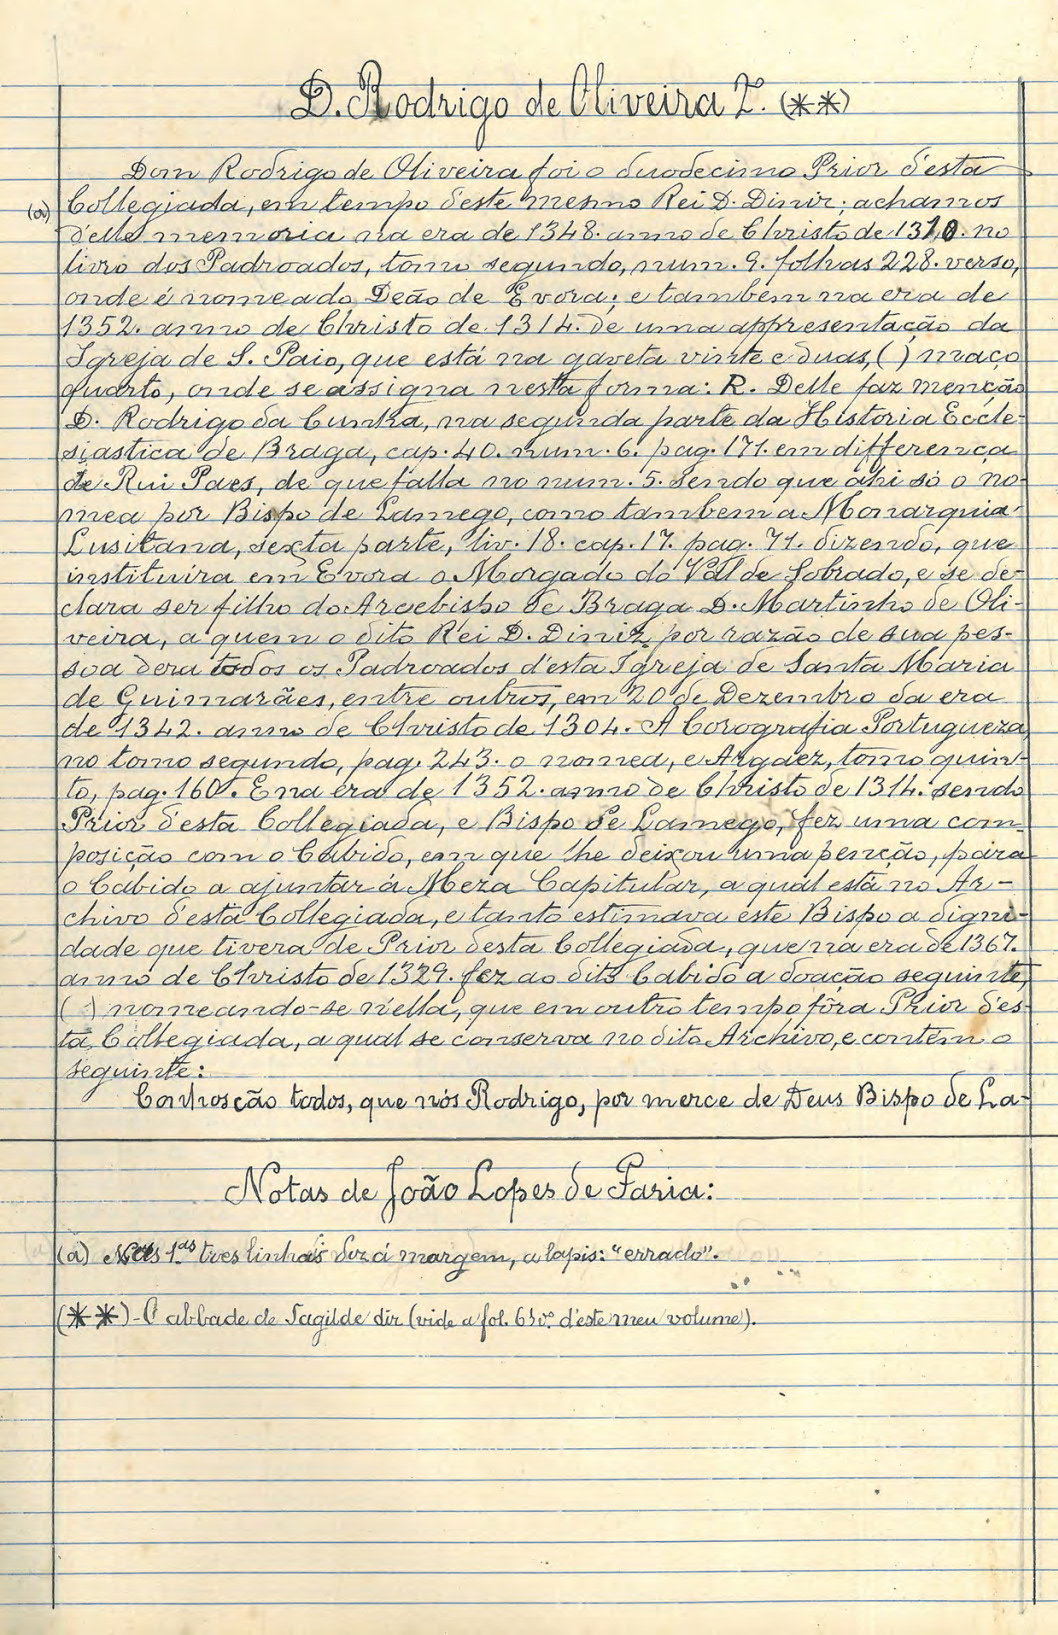 D. Rodrigo de Oliveira 2.º (**)
Dom Rodrigo de Oliveira foi o duodecimo Prior d'esta
(a) Collegiada, em tempo d'este mesmo Rei D. Diniz; achamos
d'elle memoria na era de 1348. anno de Christo de 1310. no
livro dos Padroados, tomo segundo, num. 9. folhas 228. verso,
onde é nomeado Deão de Evora; e tambem na era de
1352. anno de Christo de 1314. de uma appresentação da
Igreja de S. Paio, que está na gaveta vinte e duas, ( ) maço
quarto, onde se assigna nesta forma: R. Delle faz menção
D. Rodrigo da Cunha, na segunda parte da Historia Eccle-
siastica de Braga, cap. 40. num. 6. pag. 171. em differença
de Rui Paes, de que falla no num. 5. sendo que ahi só o no-
mea por Bispo de Lamego, como tambem a Monarquia
Lusitana, sexta parte, liv. 18. cap. 17. pag. 71. dizendo, que
instituira em Evora o Morgado do Val de Sobrado, e se de-
clara ser filho do Arcebispo de Braga D. Martinho de Oli-
veira, a quem o dito Rei D. Diniz por razão de sua pes-
soa dera todos os Padroados d'esta Igreja de Santa Maria
de Guimarães, entre outros, em 20 de Dezembro da era
de 1342. anno de Christo de 1304. A Corografia Portugueza
no tomo segundo, pag. 243. o nomea, e Argaez, tomo quin-
to, pag. 160. E na era de 1352. anno de Christo de 1314. sendo
Prior d'esta Collegiada, e Bispo de Lamego, fez uma com-
posição com o Cabido, em que lhe deixou uma penção, para
o Cabido a ajuntar á Meza Capitular, a qual está no Ar-
chivo d'esta Collegiada, e tanto estimava este Bispo a digni-
dade que tivera de Prior desta Collegiada, que na era de 1367.
anno de Christo de 1329. fez ao dito Cabido a doação seguinte,
( ) nomeando-se n'ella, que em outro tempo fôra Prior d'es-
ta Collegiada, a qual se conserva no dito Archivo, e contêm o
seguinte:
Conhosção todos, que nós Rodrigo, por merce de Deus Bispo de La-
Notas de João Lopes de Faria:
(a) Nas 1.as tres linhas diz á margem, a lapis: "errado".
(**) - O abbade de Tagilde diz (vide a fol. 63 v.º d'este meu volume).